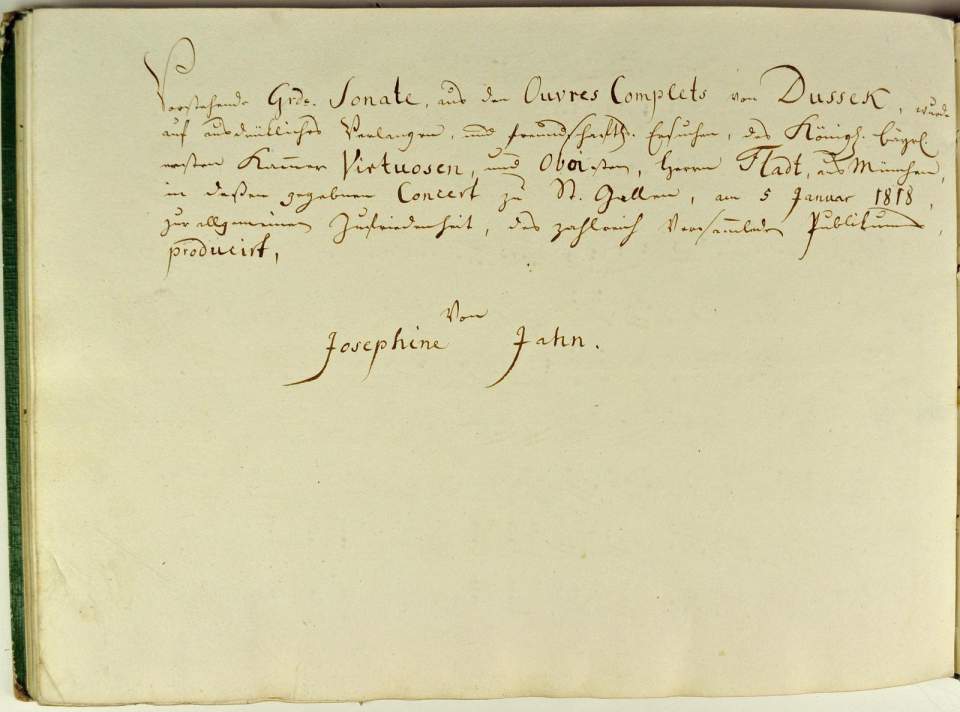 Vorstehende Grde. Sonate, aus den Ouvres Complets von Dussek, wurde
auf ausdrükliches Verlangen, und freundschaftl. Ersuchen, des Königl. bayr.
ersten Kam̅er Virtuosen, und Oboisten, Herrn Fladt, aus München,
in deßen gegebnen Concert zu St. Gallen, am 5 Januar 1818,
zur allgemeinen Zufriedenheit, des zahlreich Versam̅leten Publikums,
producirt,
Von
Josephine Jahn.